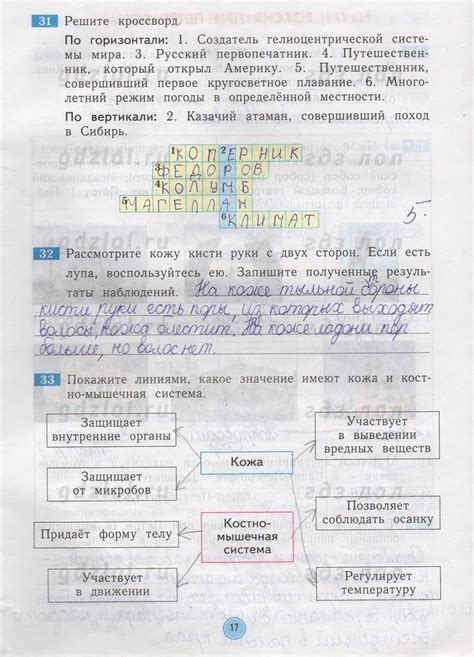 31 Решите кроссворд.
По горизонтали: 1. Создатель гелиоцентрической систе-
мы мира. 3. Русский первопечатник. 4. Путешествен-
ник, который открыл Америку. 5. Путешественник,
совершивший первое кругосветное плавание. 6. Много-
летний режим погоды в определённой местности.
По вертикали: 2. Казачий атаман, совершивший поход
в Сибирь.
1 КОП 2 ЕРНИК
3 ФЕДОРОВ
4 КОЛУМБ
5 МАГЕЛЛАН
6 КЛИМАТ
5.
gdzlol.ru
32 Рассмотрите кожу кисти руки с двух сторон. Если есть
лупа, воспользуйтесь ею. Запишите полученные резуль-
таты наблюдений. На коже тыльной стороны
кисти руки есть поры, из которых выходят
волосы, кожа блестит. На коже ладони пор
больше, но волос нет.
33 Покажите линиями, какое значение имеют кожа и кост-
но-мышечная система.
Защищает
внутренние органы
Участвует
в выведении
вредных веществ
Кожа
Защищает
от микробов
Позволяет
соблюдать осанку
Придаёт форму телу
Костно-
мышечная
система
Участвует
в движении
Регулирует
температуру
17